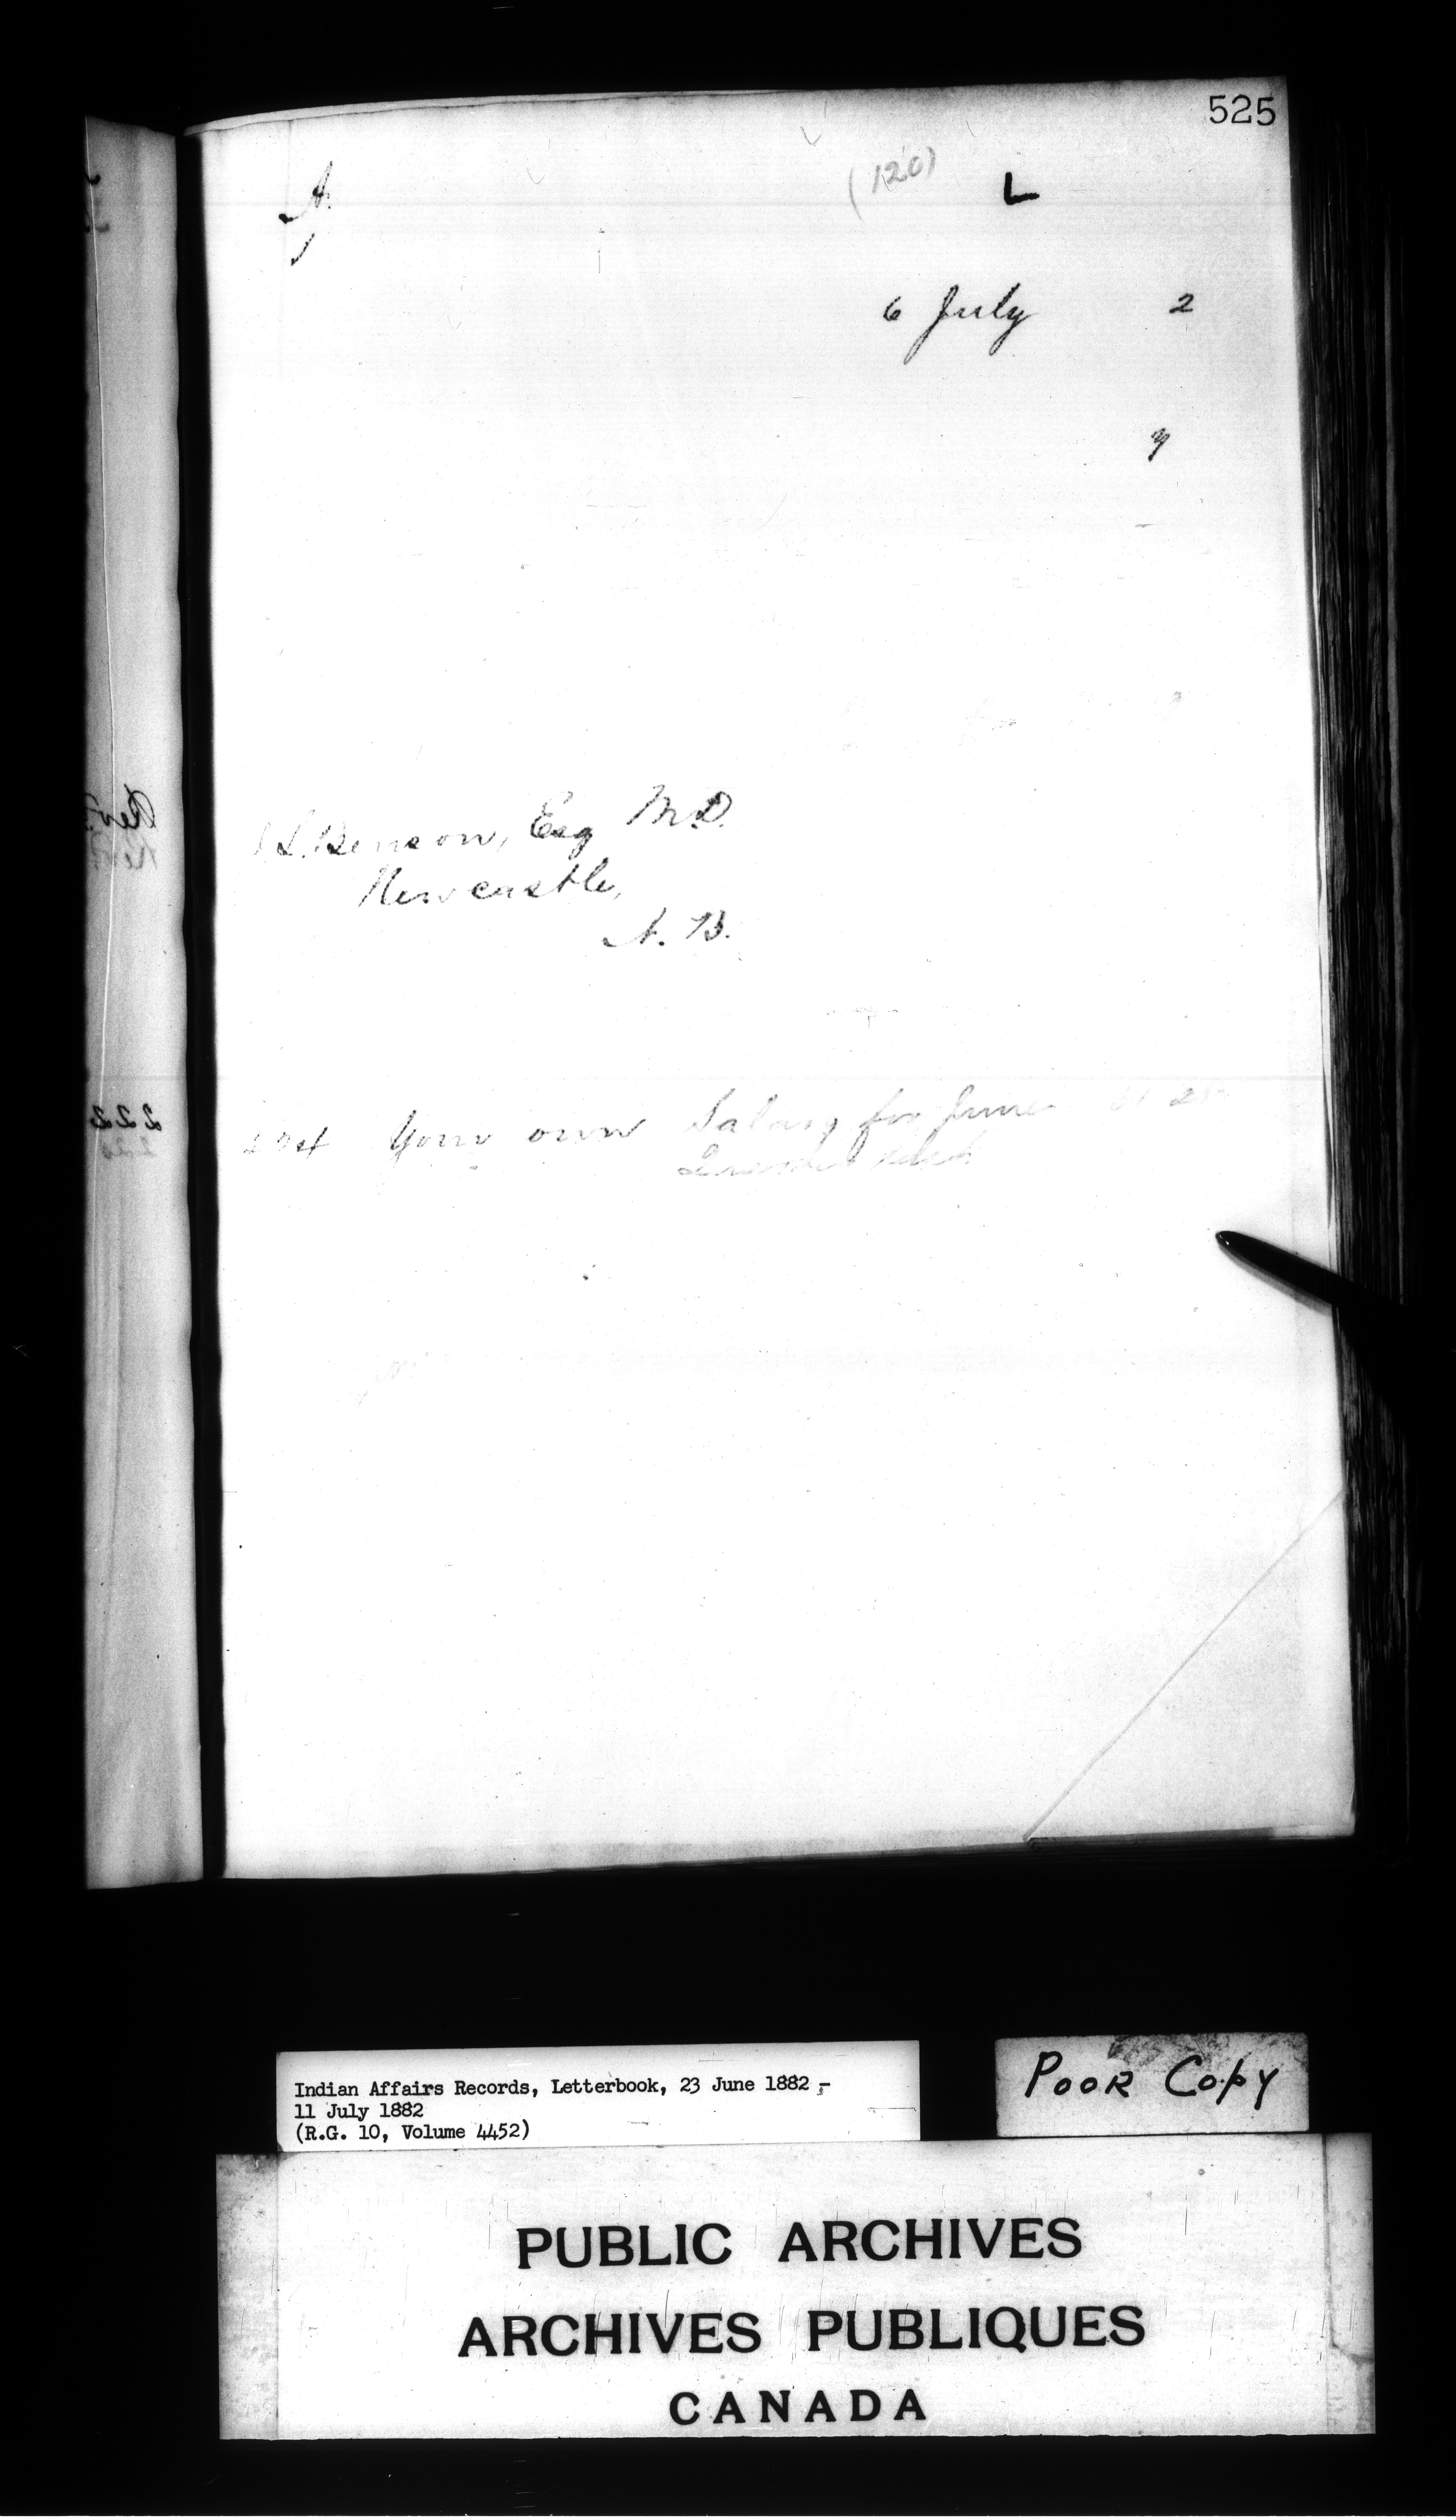 525
(120)
L
A.
6 July 2
y
L. Benson, Esq M.D.
Newcastle,
N. B.
Your own Salary for June
Rev
222
Indian Affairs Records, Letterbook, 23 June 1882 -
11 July 1882
(R.G. 10, Volume 4452)
POOR COPY
PUBLIC ARCHIVES
ARCHIVES PUBLIQUES
CANADA